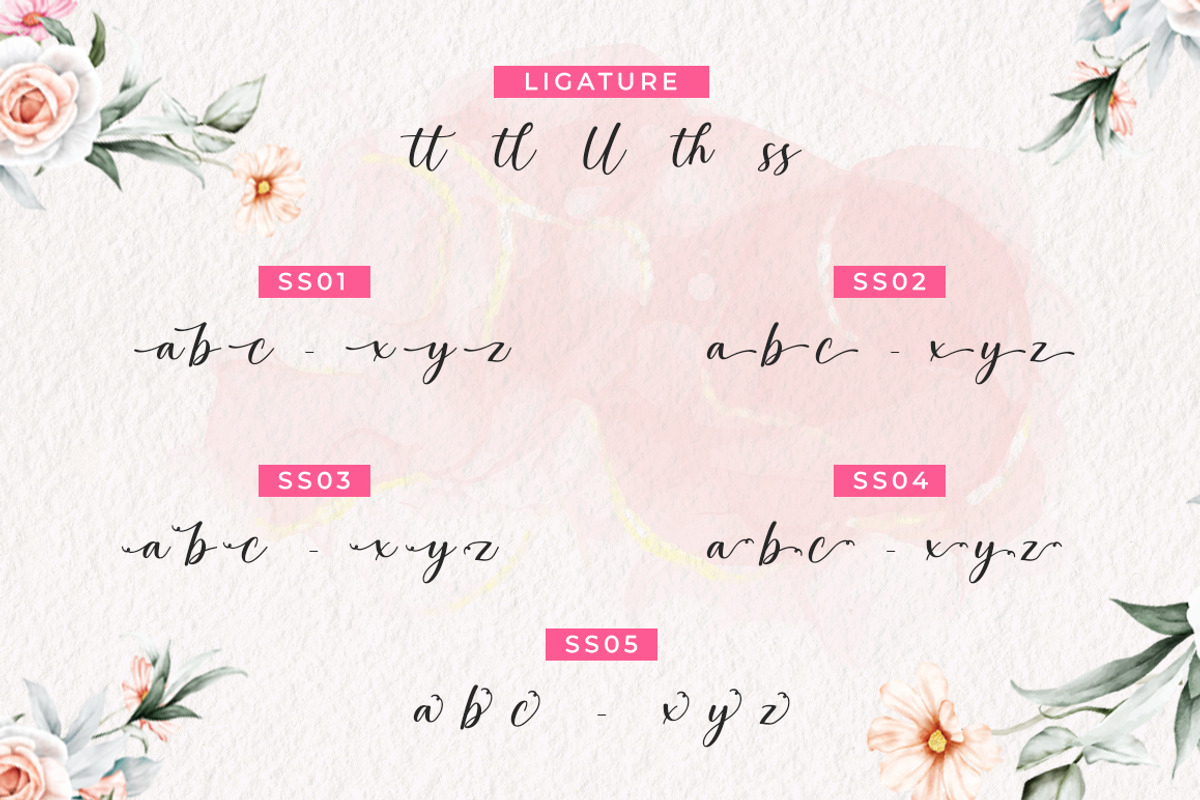 LIGATURE
tt tl ll th ss
SS01
abc - xyz
SS02
abc - xyz
SS03
abc - xyz
SS04
abc - xyz
SS05
abc - xyz